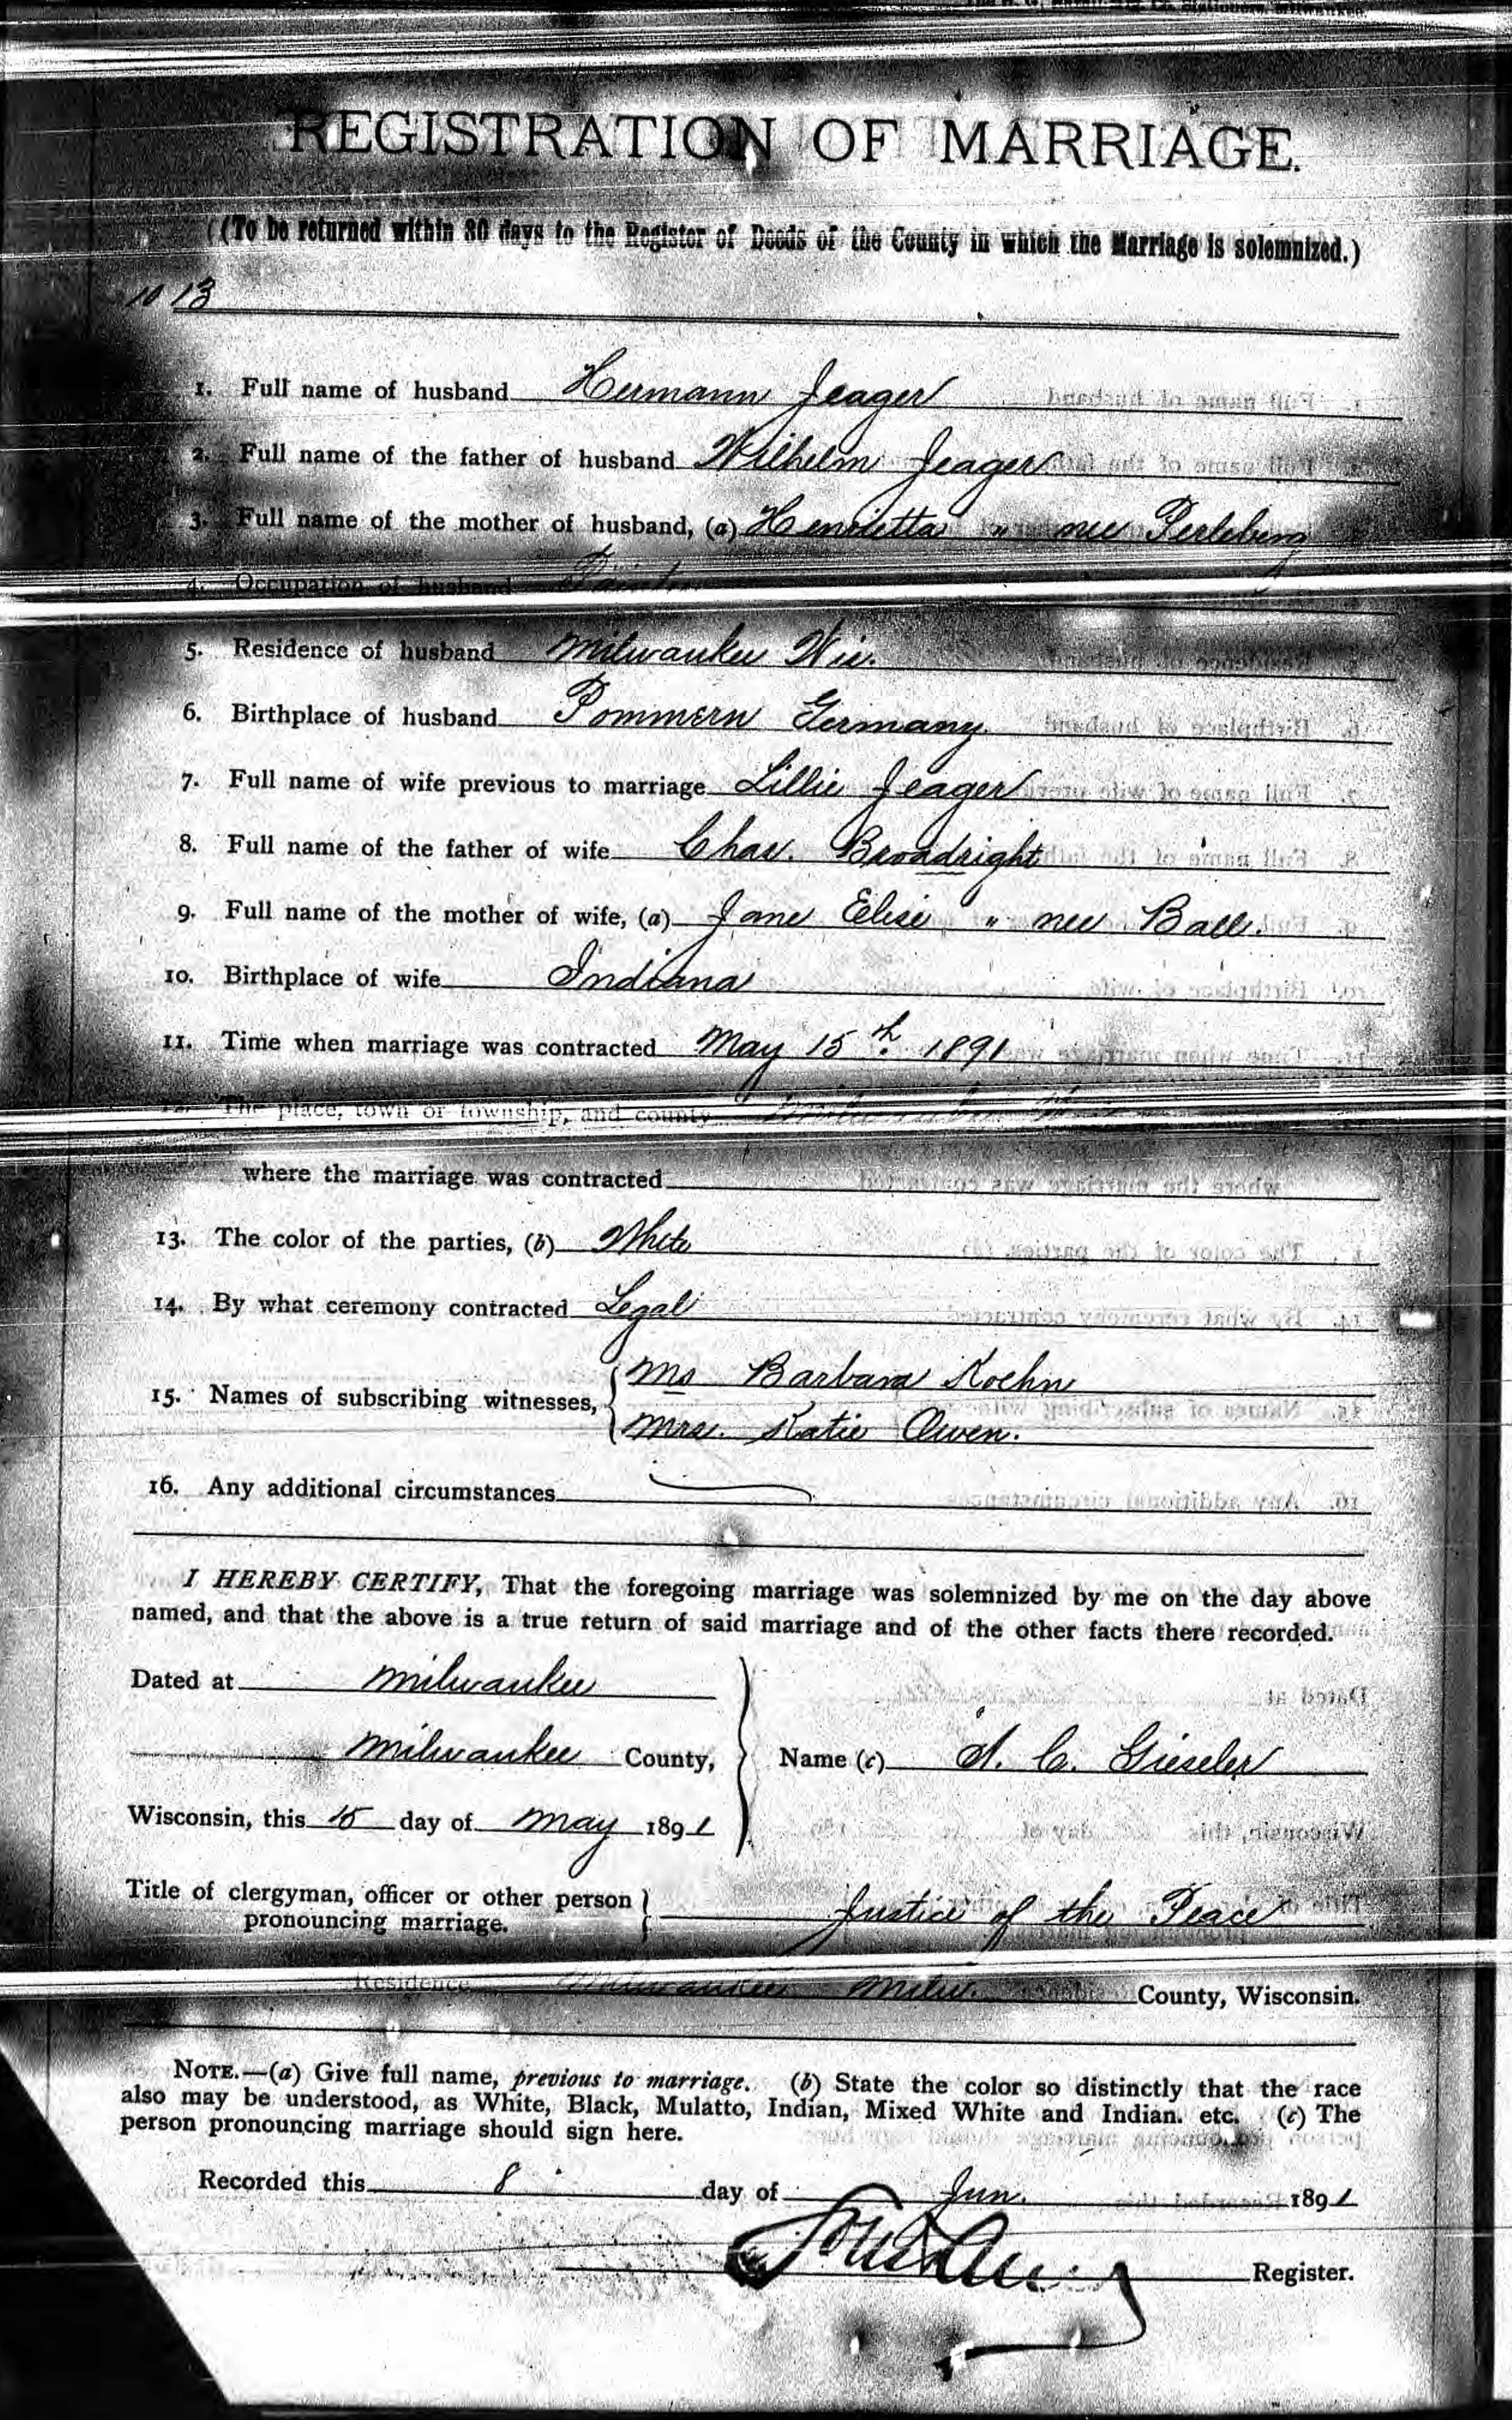 REGISTRATION OF MARRIAGE.
(To be returned within 30 days to the Register of Deeds of the County in which the Marriage is solemnized.)
1013
1. Full name of husband Hermann Jeager
2. Full name of the father of husband Wilhelm Jeager
3. Full name of the mother of husband, (a) Henrietta " nee Perleberg
4. Occupation of husband
5. Residence of husband Milwaukee Wis.
6. Birthplace of husband Pommern Germany
7. Full name of wife previous to marriage Lillie Jeager
8. Full name of the father of wife Chas. Broadright
9. Full name of the mother of wife, (a) Jane Elise " nee Ball.
10. Birthplace of wife Indiana
11. Time when marriage was contracted May 15th. 1891
The place, town or township, and county
where the marriage was contracted
13. The color of the parties, (b) White
14. By what ceremony contracted Legal
15. Names of subscribing witnesses, Ms Barbara Koehn
Mrs. Katie Owen.
16. Any additional circumstances
I HEREBY CERTIFY, That the foregoing marriage was solemnized by me on the day above
named, and that the above is a true return of said marriage and of the other facts there recorded.
Dated at Milwaukee
Milwaukee County, Name (c) A. C. Gieseler
Wisconsin, this 15 day of May 1891
Title of clergyman, officer or other person
pronouncing marriage. Justice of the Peace
Residence Milwaukee Milw. County, Wisconsin.
NOTE.—(a) Give full name, previous to marriage. (b) State the color so distinctly that the race
also may be understood, as White, Black, Mulatto, Indian, Mixed White and Indian. etc. (c) The
person pronouncing marriage should sign here.
Recorded this 8 day of Jun. 1891
Register.